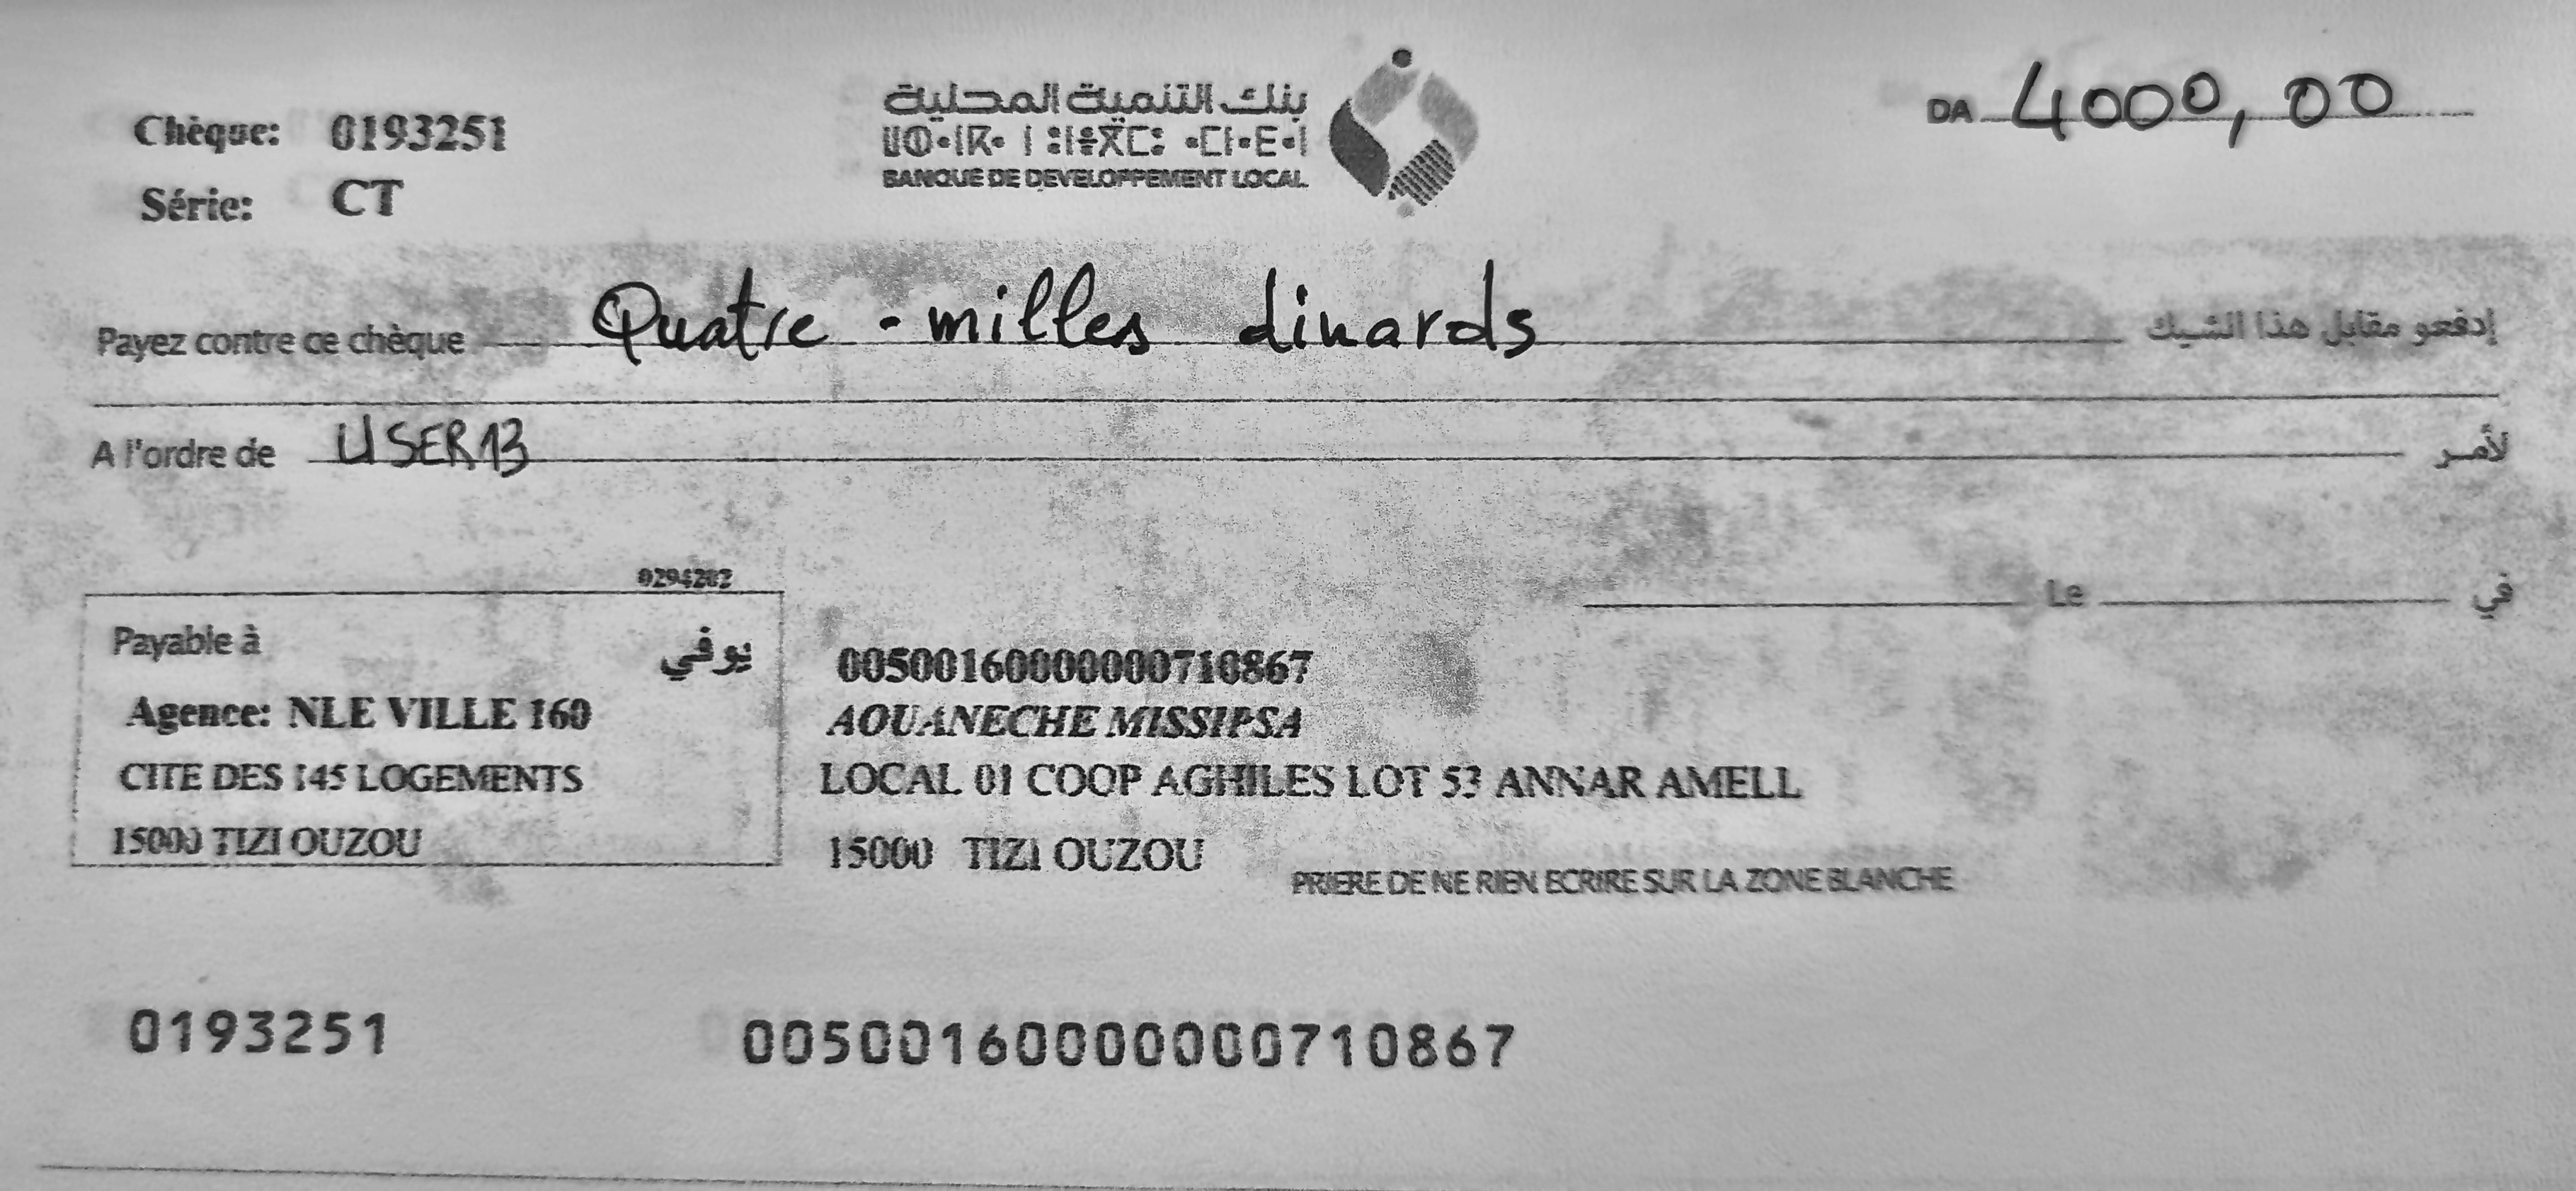 Chèque: 0193251
Série: CT
بنك التنمية المحلية
BANQUE DE DEVELOPPEMENT LOCAL
DA 4000,00
Payez contre ce chèque Quatre - milles dinards إدفعو مقابل هذا الشيك
A l'ordre de USER13 لأمر
0294282
Le في
Payable à يوفي
Agence: NLE VILLE 160
CITE DES 145 LOGEMENTS
15000 TIZI OUZOU
00500160000000710867
AOUANECHE MISSIPSA
LOCAL 01 COOP AGHILES LOT 53 ANNAR AMELL
15000 TIZI OUZOU
PRIERE DE NE RIEN ECRIRE SUR LA ZONE BLANCHE
0193251 00500160000000710867